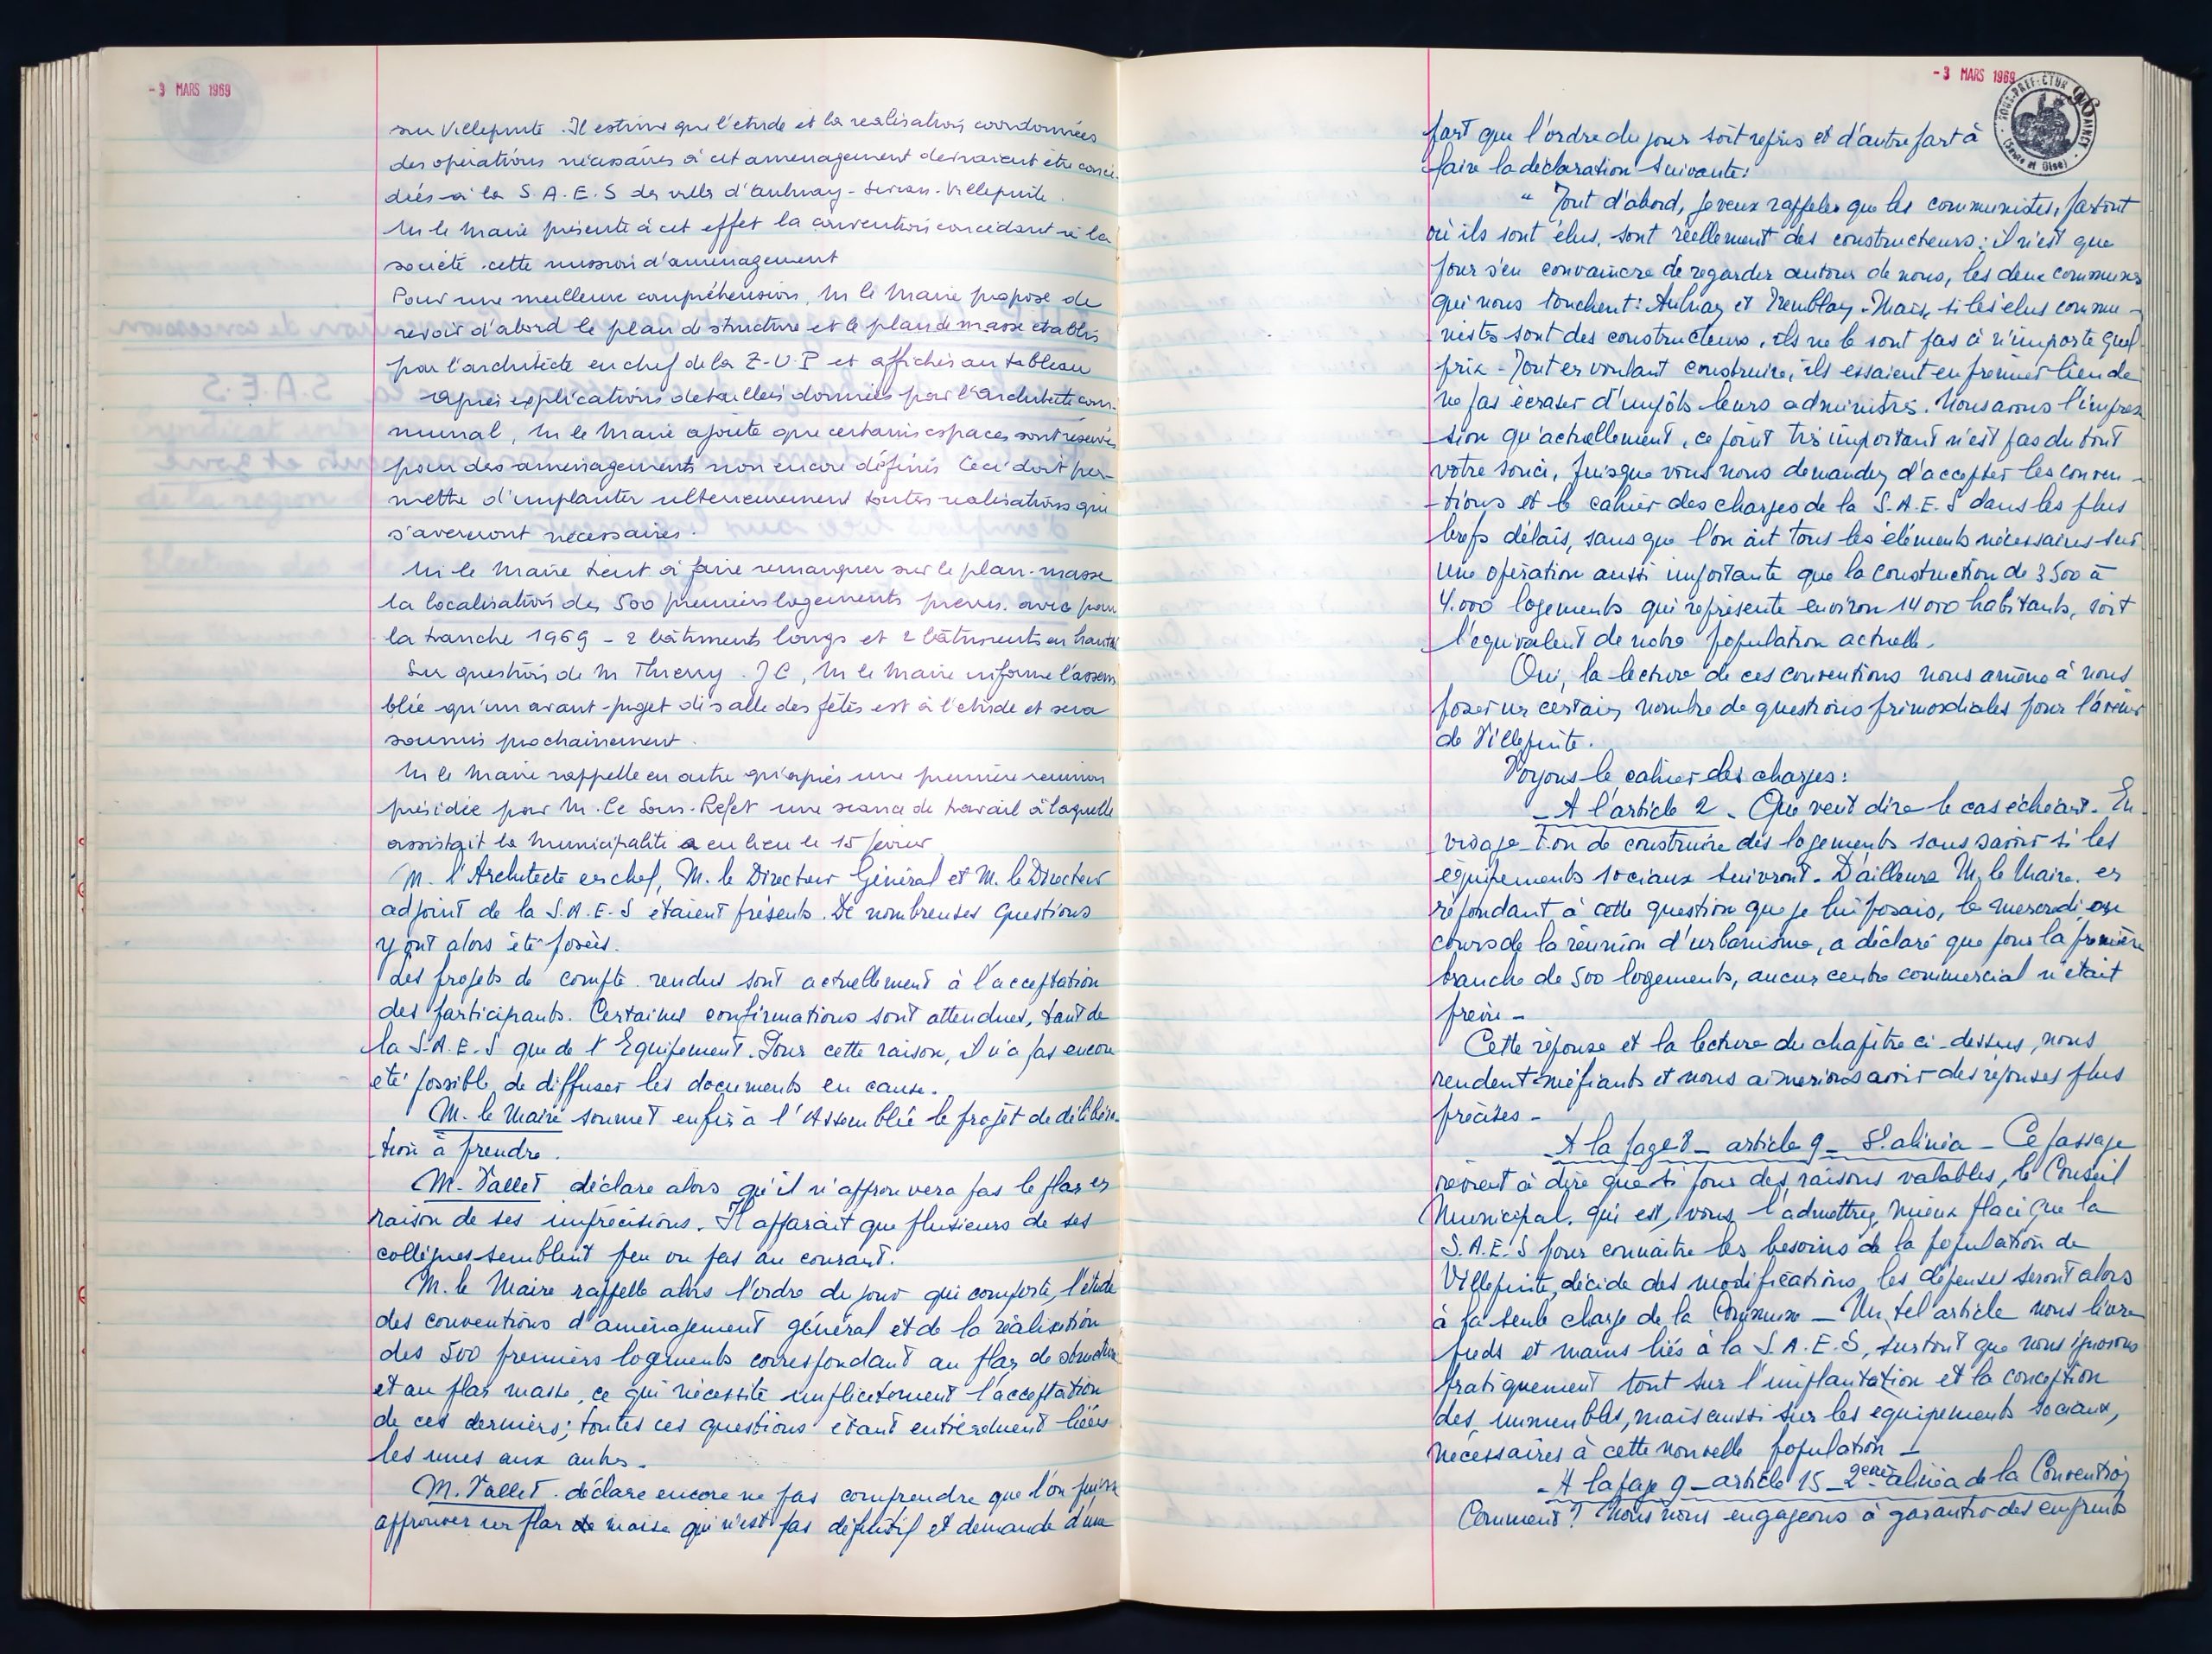 - 3 MARS 1969
sur Villepinte. Il estime que l'etude et la realisation coordonnées
des opérations nécessaires à cet amenagement devraient être concé-
dées à la S.A.E.S des villes d'Aulnay-Sevran-Villepinte.
M le Maire présente à cet effet la convention concédant à la
société cette mission d'aménagement
Pour une meilleure compréhension, M le Maire propose de
revoir d'abord le plan de structure et le plan de masse établis
par l'architecte en chef de la Z-U-P et affichés au tableau
après explications detaillées données par l'architecte com-
munal, M le Maire ajoute que certains espaces sont réservés
pour des amenagements non encore définis Ceci doit per-
mettre d'implanter ulterieurement toutes realisations qui
s'avereront nécessaires.
M le Maire tient à faire remarquer sur le plan-masse
la localisation des 500 premiers logements prevus. avec pour
la tranche 1969 - 2 bâtiments longs et 2 bâtiments en hauteur
Sur question de M Thierry. J C, M le Maire informe l'assem
blée qu'un avant-projet de salle des fêtes est à l'étude et sera
soumis prochainement.
M le Maire rappelle en outre qu'après une première reunion
présidée par M. Le Sous-Préfet une seance de travail à laquelle
assistait la Municipalité a eu lieu le 15 fevrier
M. l'Architecte en chef, M. le Directeur Général et M. le Directeur
adjoint de la S.A.E.S étaient présents. De nombreuses questions
y ont alors été posées.
des projets de compte rendus sont actuellement à l'acceptation
des participants. Certaines confirmations sont attendues, tant de
la S.A.E.S que de l'Equipement. Pour cette raison, il n'a pas encore
été possible de diffuser les documents en cause.
M. le Maire soumet enfin à l'Assemblée le projet de délibéra-
tion à prendre.
M. Vallet déclare alors qu'il n'approuvera pas le plan en
raison de ses imprécisions. Il apparait que plusieurs de ses
collègues semblent peu ou pas au courant.
M. le Maire rappelle alors l'ordre du jour qui comporte, l'étude
des conventions d'aménagement général et de la réalisation
des 500 premiers logements correspondant au plan de structure
et au plan masse, ce qui nécessite implicitement l'acceptation
de ces derniers; toutes ces questions étant entièrement liées
les unes aux autres.
M. Vallet déclare encore ne pas comprendre que l'on puisse
approuver un plan de masse qui n'est pas définitif et demande d'une
- 3 MARS 1969
SOUS-PREFECTURE RAINCY (Seine et Oise)
part que l'ordre du jour soit repris et d'autre part à
faire la déclaration suivante:
" Tout d'abord, je veux rappeler que les communistes, partout
où ils sont élus, sont réellement des constructeurs; il n'est que
pour s'en convaincre de regarder autour de nous, les deux communes
qui nous touchent: Aulnay et Tremblay. Mais, si les élus commu-
nistes sont des constructeurs, ils ne le sont pas à n'importe quel
prix - Tout en voulant construire, ils essaient en premier lieu de
ne pas écraser d'impôts leurs administrés. Nous avons l'impres
sion qu'actuellement, ce point très important n'est pas du tout
votre souci, puisque vous nous demandez d'accepter les conven-
-tions et le cahier des charges de la S.A.E.S dans les plus
brefs délais, sans que l'on ait tous les éléments nécessaires sur
une opération aussi importante que la construction de 3 500 à
4.000 logements qui représente environ 14 000 habitants, soit
l'équivalent de notre population actuelle.
Oui, la lecture de ces conventions nous amène à nous
poser un certain nombre de questions primordiales pour l'avenir
de Villepinte.
Voyons le cahier des charges:
- A l'article 2 - Que veut dire le cas échéant. En-
visage-t-on de construire des logements sans savoir si les
équipements sociaux suivront. D'ailleurs M. le Maire en
répondant à cette question que je lui posais, le mercredi au
cours de la réunion d'urbanisme, a déclaré que pour la première
tranche de 500 logements, aucun centre commercial n'était
prévu -
Cette réponse et la lecture du chapitre ci-dessus, nous
rendent méfiants et nous aimerions avoir des réponses plus
précises -
- A la page 8 - article 9 - 5°. alinéa - Ce passage
revient à dire que si pour des raisons valables, le Conseil
Municipal, qui est, vous l'admettrez, mieux placé que la
S.A.E.S pour connaître les besoins de la population de
Villepinte, décide des modifications, les dépenses seront alors
à la seule charge de la Commune - Un tel article nous livre
pieds et mains liés à la S.A.E.S, surtout que nous ignorons
pratiquement tout sur l'implantation et la conception
des immeubles, mais aussi sur les équipements sociaux,
nécessaires à cette nouvelle population -
- A la page 9 - article 15 - 2eme alinéa de la Convention
Comment? Nous nous engageons à garantir des emprunts